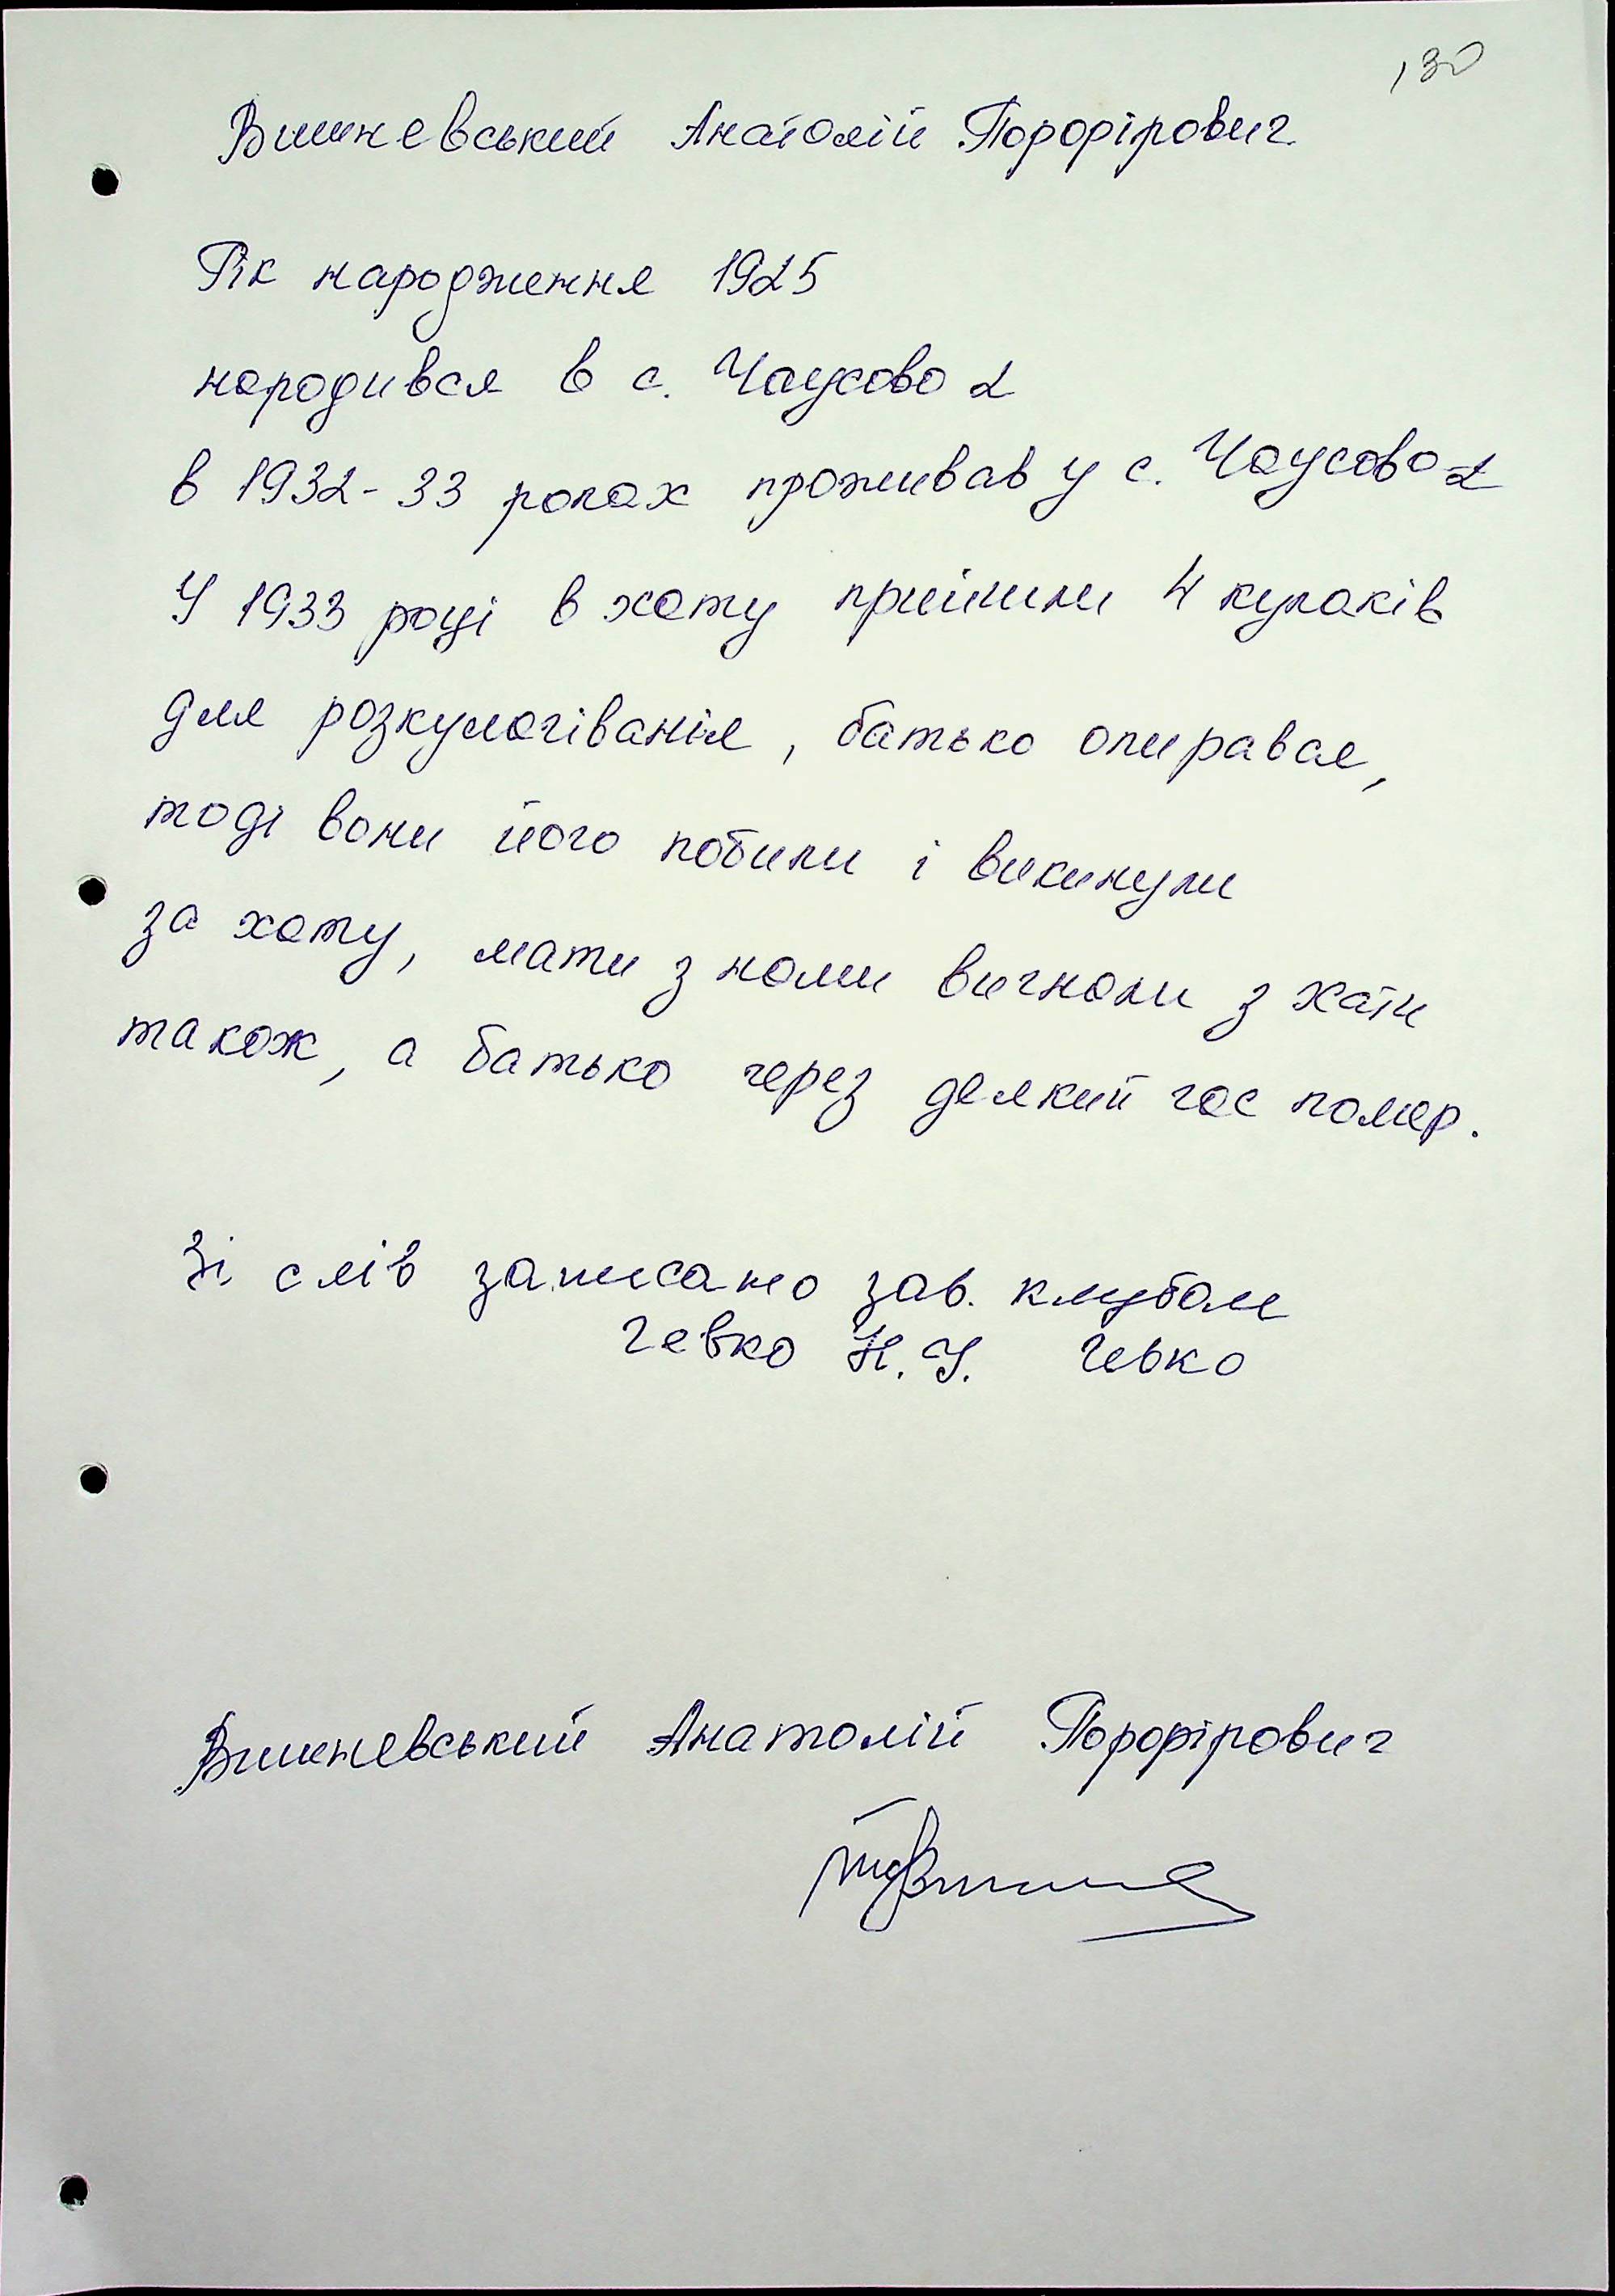 130
Вишневський Анатолій Порфірович
Рік народження 1925
народився в с. Чаусово 2
в 1932-33 роках проживав у с. Чаусово-2
У 1933 році в хату прийшли 4 кулаків
для розкулачіванія, батько опирався,
тоді вони його побили і викинули
за хату, мати з нами вигнали з хати
також, а батько через деякий час помер.
Зі слів записано зав. клубом
Гевко Н.У. Гевко
Вишневський Анатолій Порфірович